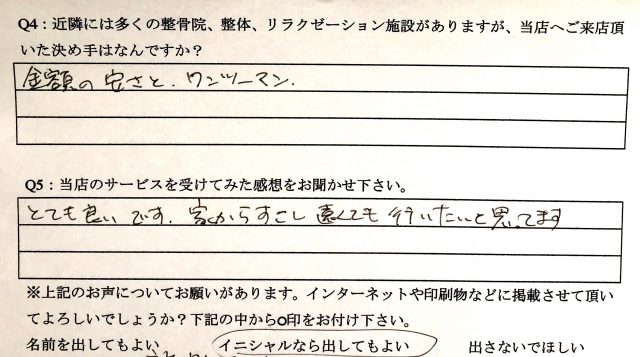 Q4：近隣には多くの整骨院、整体、リラクゼーション施設がありますが、当店へご来店頂
いた決め手はなんですか？
金額の安さと、ワンツーマン.
Q5：当店のサービスを受けてみた感想をお聞かせ下さい。
とても良いです. 家からすこし遠くても行いたいと思ってます
※上記のお声についてお願いがあります。インターネットや印刷物などに掲載させて頂い
てよろしいでしょうか？下記の中から○印をお付け下さい。
名前を出してもよい イニシャルなら出してもよい 出さないでほしい